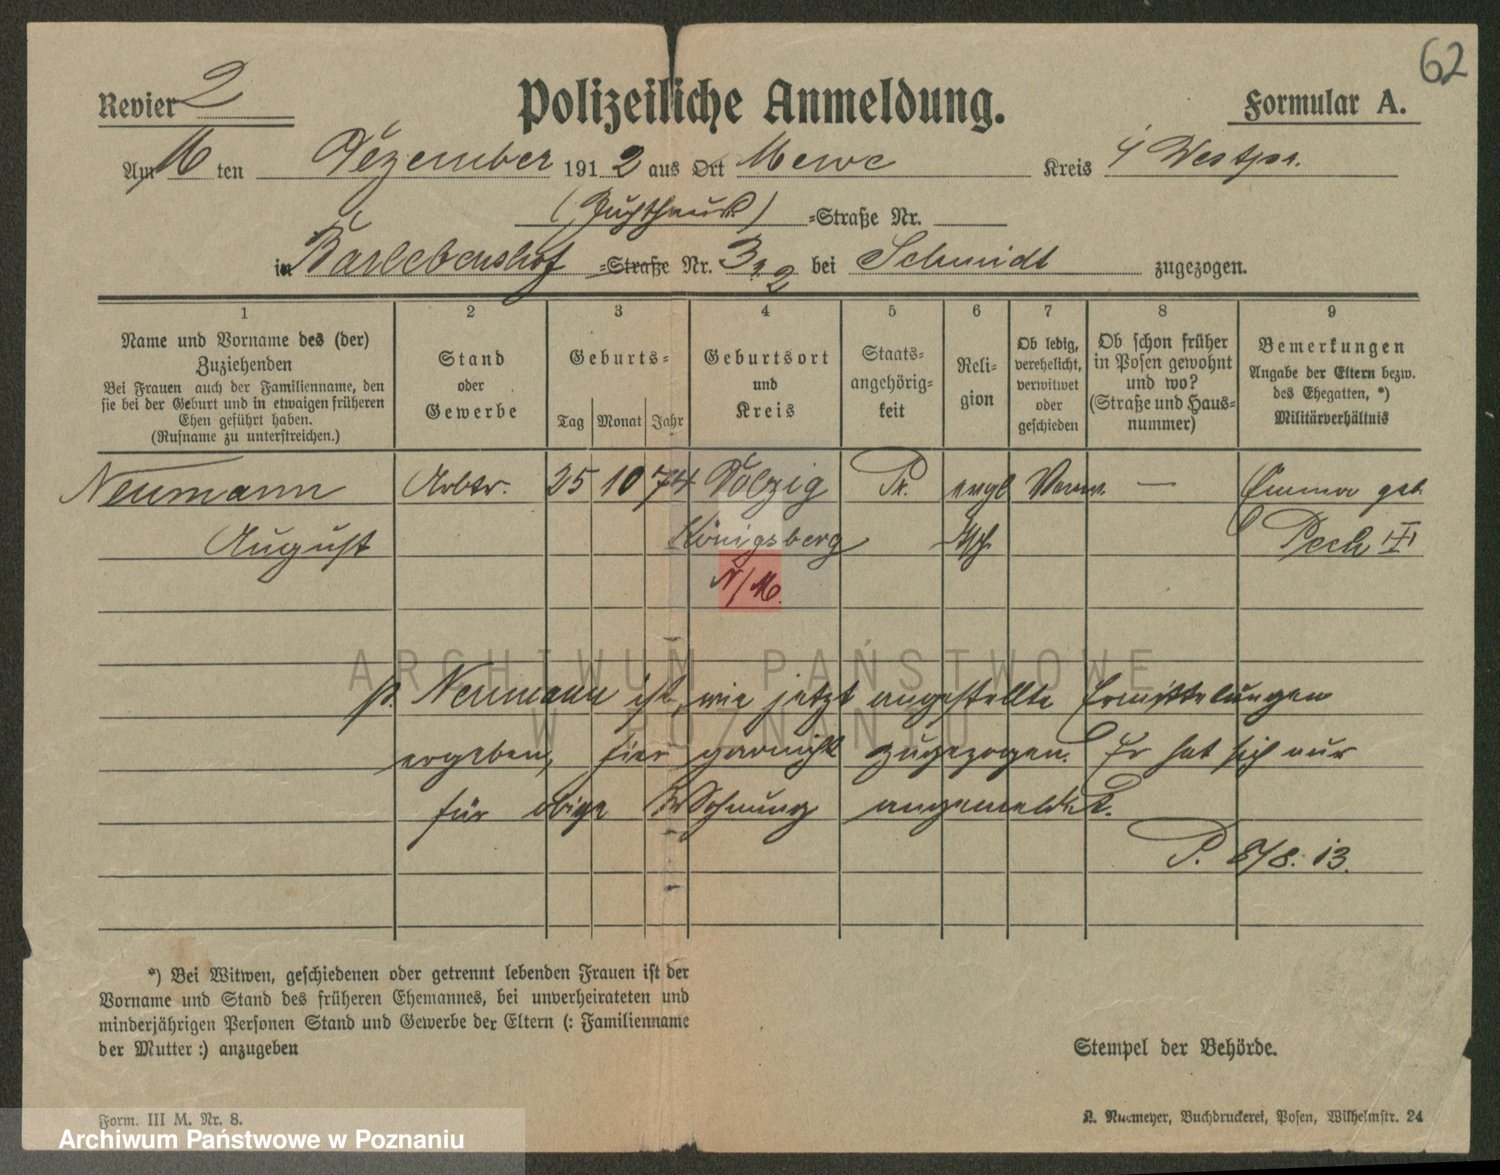 62
Revier 2
Polizeiliche Anmeldung.
Formular A.
Am 16 ten Dezember 1912 aus Ort Mewe Kreis i/ Westpr.
(Zuchthaus) =Straße Nr.
in Barlebenshof =Straße Nr. 3 I. 2 bei Schmidt zugezogen.
1 2 3 4 5 6 7 8 9
Name und Vorname des (der) Zuziehenden
Bei Frauen auch der Familienname, den
sie bei der Geburt und in etwaigen früheren
Ehen geführt haben.
(Rufname zu unterstreichen.)
Stand
oder
Gewerbe
Geburts=
Tag Monat Jahr
Geburtsort
und
Kreis
Staats=
angehörig=
keit
Reli=
gion
Ob ledig,
verehelicht,
verwitwet
oder
geschieden
Ob schon früher
in Posen gewohnt
und wo?
(Straße und Haus=
nummer)
Bemerkungen
Angabe der Eltern bezw.
des Ehegatten, *)
Militärverhältnis
Neumann Arbtr. 25 10 74 Dölzig Pr. evgl — Emma geb.
August Königsberg Pech
N/M.
p. Neumann ist, wie jetzt angestellte Ermittelungen
ergeben, hier garnicht zugezogen. Er hat sich nur
für obige Wohnung angemeldet.
P. 8/8. 13.
*) Bei Witwen, geschiedenen oder getrennt lebenden Frauen ist der
Vorname und Stand des früheren Ehemannes, bei unverheirateten und
minderjährigen Personen Stand und Gewerbe der Eltern (: Familienname
der Mutter :) anzugeben
Stempel der Behörde.
Form. III M. Nr. 8.
Buchdruckerei, Posen, Wilhelmstr. 24
ARCHIWUM PAŃSTWOWE
W POZNANIU
Archiwum Państwowe w Poznaniu